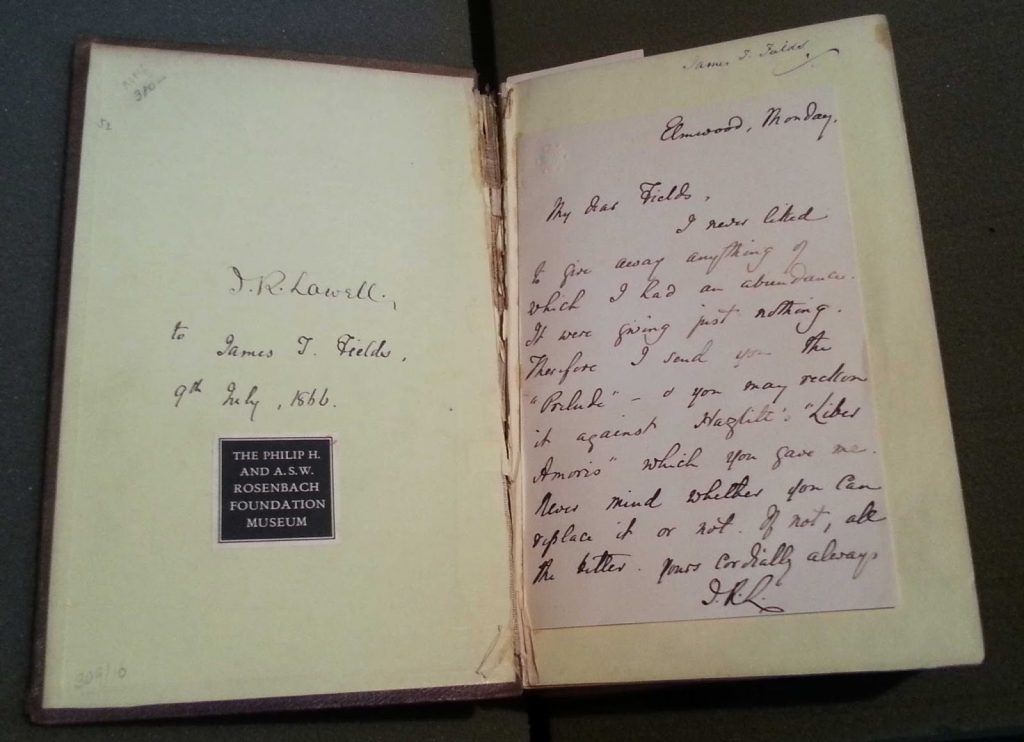 310
52
J. R. Lowell,
to
James T. Fields,
9th July, 1866.
THE PHILIP H.
AND A.S.W.
ROSENBACH
FOUNDATION
MUSEUM
James T. Fields.
Elmwood, Monday.
My dear Fields,
I never liked
to give away anything of
which I had an abundance.
It were giving just nothing.
Therefore I send you the
"Prelude" – & you may reckon
it against Hazlitt's "Liber
Amoris" which you gave me.
Never mind whether you can
replace it or not. If not, all
the better. Yours cordially always
J.R.L.